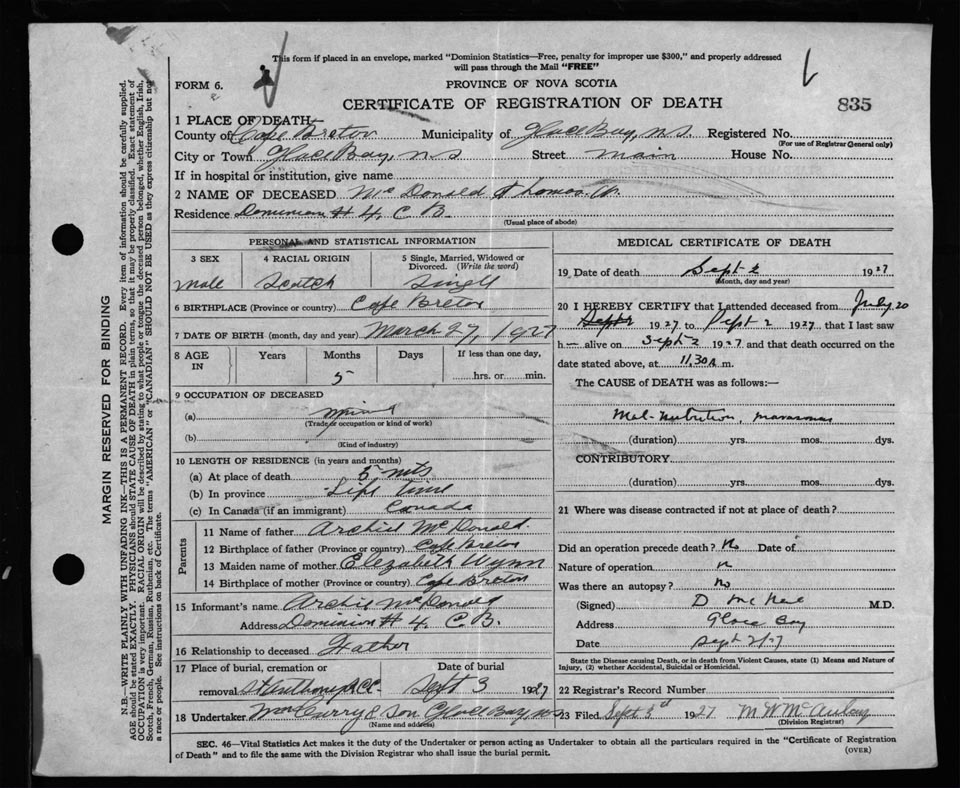 This form if placed in an envelope, marked "Dominion Statistics—Free, penalty for improper use $300," and properly addressed
will pass through the Mail "FREE"
FORM 6.
PROVINCE OF NOVA SCOTIA
CERTIFICATE OF REGISTRATION OF DEATH
835
1 PLACE OF DEATH—
County of Cape Breton Municipality of Glace Bay, N.S. Registered No.
(For use of Registrar General only)
City or Town Glace Bay, N S Street Main House No.
If in hospital or institution, give name
2 NAME OF DECEASED McDonald Thomas W.
Residence Dominion # 4, C B.
(Usual place of abode)
PERSONAL AND STATISTICAL INFORMATION
3 SEX
male
4 RACIAL ORIGIN
Scotch
5 Single, Married, Widowed or
Divorced. (Write the word)
Singll
6 BIRTHPLACE (Province or country) Cape Breton
7 DATE OF BIRTH (month, day and year) March 27, 1927
8 AGE
IN
Years
Months
5
Days
If less than one day,
hrs. or min.
9 OCCUPATION OF DECEASED
(a)
(Trade or occupation or kind of work)
(b)
(Kind of industry)
10 LENGTH OF RESIDENCE (in years and months)
(a) At place of death 5 mts
(b) In province Life time
(c) In Canada (if an immigrant) Canada
Parents
11 Name of father Archie McDonald
12 Birthplace of father (Province or country) Cape Breton
13 Maiden name of mother Elezabeth Wynn
14 Birthplace of mother (Province or country) Cape Breton
15 Informant's name Archie McDonald
Address Dominion # 4, C. B.
16 Relationship to deceased Father
17 Place of burial, cremation or
removal
Date of burial
Sept 3 1927
18 Undertaker & Son Glace Bay, NS
(Name and address)
MEDICAL CERTIFICATE OF DEATH
19 Date of death Sept 2 1927
(Month, day and year)
20 I HEREBY CERTIFY that I attended deceased from July 20
Sept 2 1927 to Sept 2 1927, that I last saw
h— alive on Sept 2 1927 and that death occurred on the
date stated above, at 11.30 A m.
The CAUSE of DEATH was as follows:—
Mal-nutrition, marasmus
(duration) yrs. mos. dys.
CONTRIBUTORY
(duration) yrs. mos. dys.
21 Where was disease contracted if not at place of death?
Did an operation precede death? No Date of
Nature of operation n
Was there an autopsy? No
(Signed) D McNeil M.D.
Address Glace Bay
Date Sept 2/27
State the Disease causing Death, or in death from Violent Causes, state (1) Means and Nature of
Injury, (2) whether Accidental, Suicidal or Homicidal.
22 Registrar's Record Number
23 Filed Sept 3rd 1927
(Division Registrar)
SEC. 46—Vital Statistics Act makes it the duty of the Undertaker or person acting as Undertaker to obtain all the particulars required in the "Certificate of Registration
of Death" and to file the same with the Division Registrar who shall issue the burial permit.
(OVER)
MARGIN RESERVED FOR BINDING
N.B.—WRITE PLAINLY WITH UNFADING INK—THIS IS A PERMANENT RECORD. Every item of information should be carefully supplied.
AGE should be stated EXACTLY. PHYSICIANS should STATE CAUSE OF DEATH in plain terms, so that it may be properly classified. Exact statement of
OCCUPATION is very important. RACIAL ORIGIN will be described by stating to what people or tongue the deceased person belonged, whether English, Irish,
Scotch, French, German, Russian, Ruthenian, etc. The terms "AMERICAN" or "CANADIAN" SHOULD NOT BE USED as they express citizenship but not
a race or people. See instructions on back of Certificate.